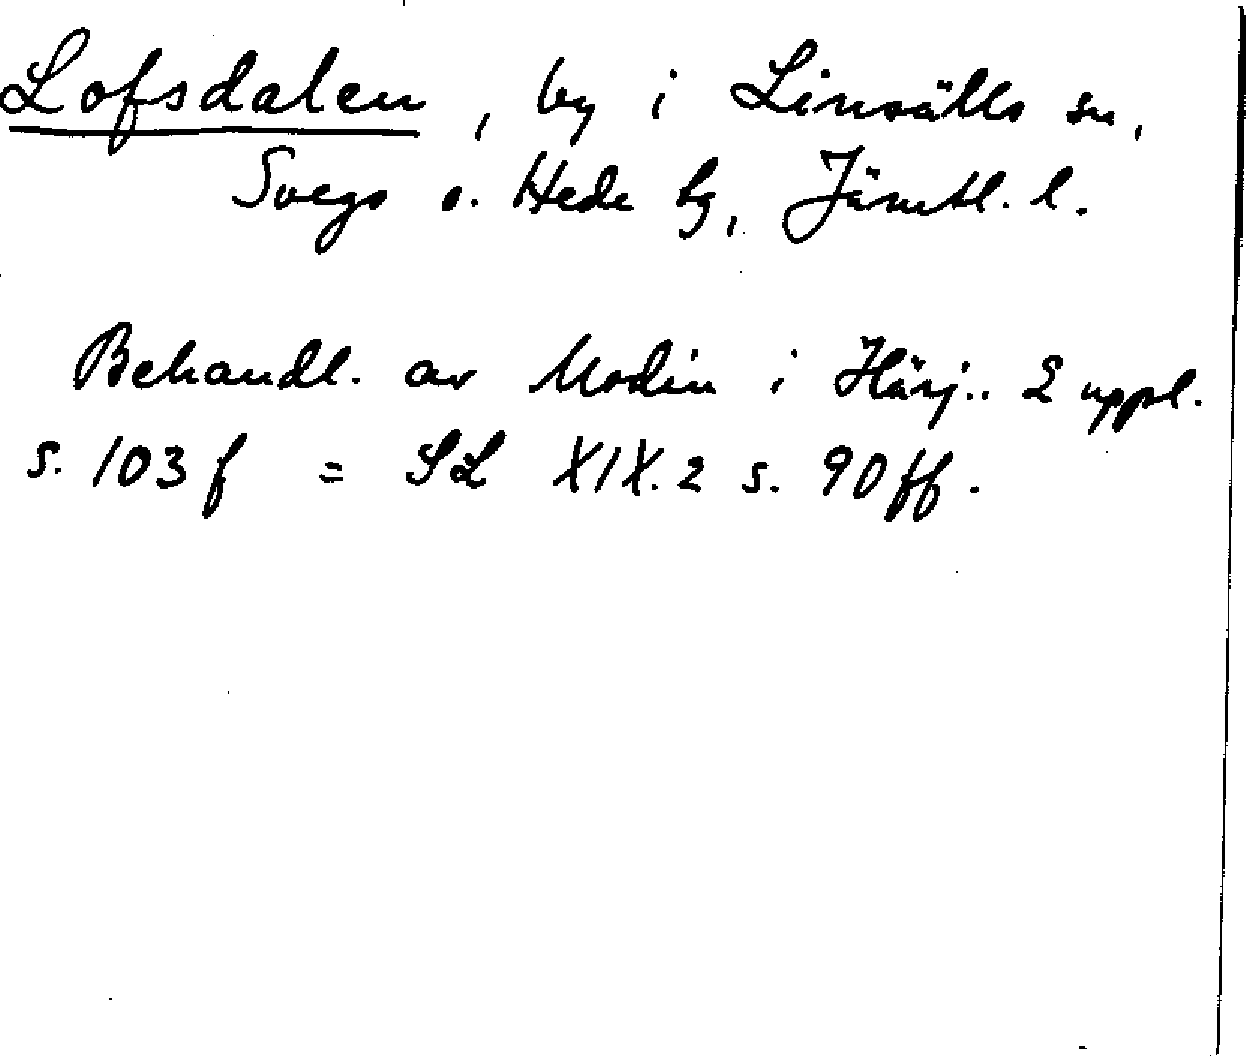 Lofsdalen, by i Linsälls sn,
Svegs o. Hede tg, Jämtl. l.
Behandl. av Modin i Härj.. 2 uppl.
s. 103 f = SL XIX.2 s. 90 ff.